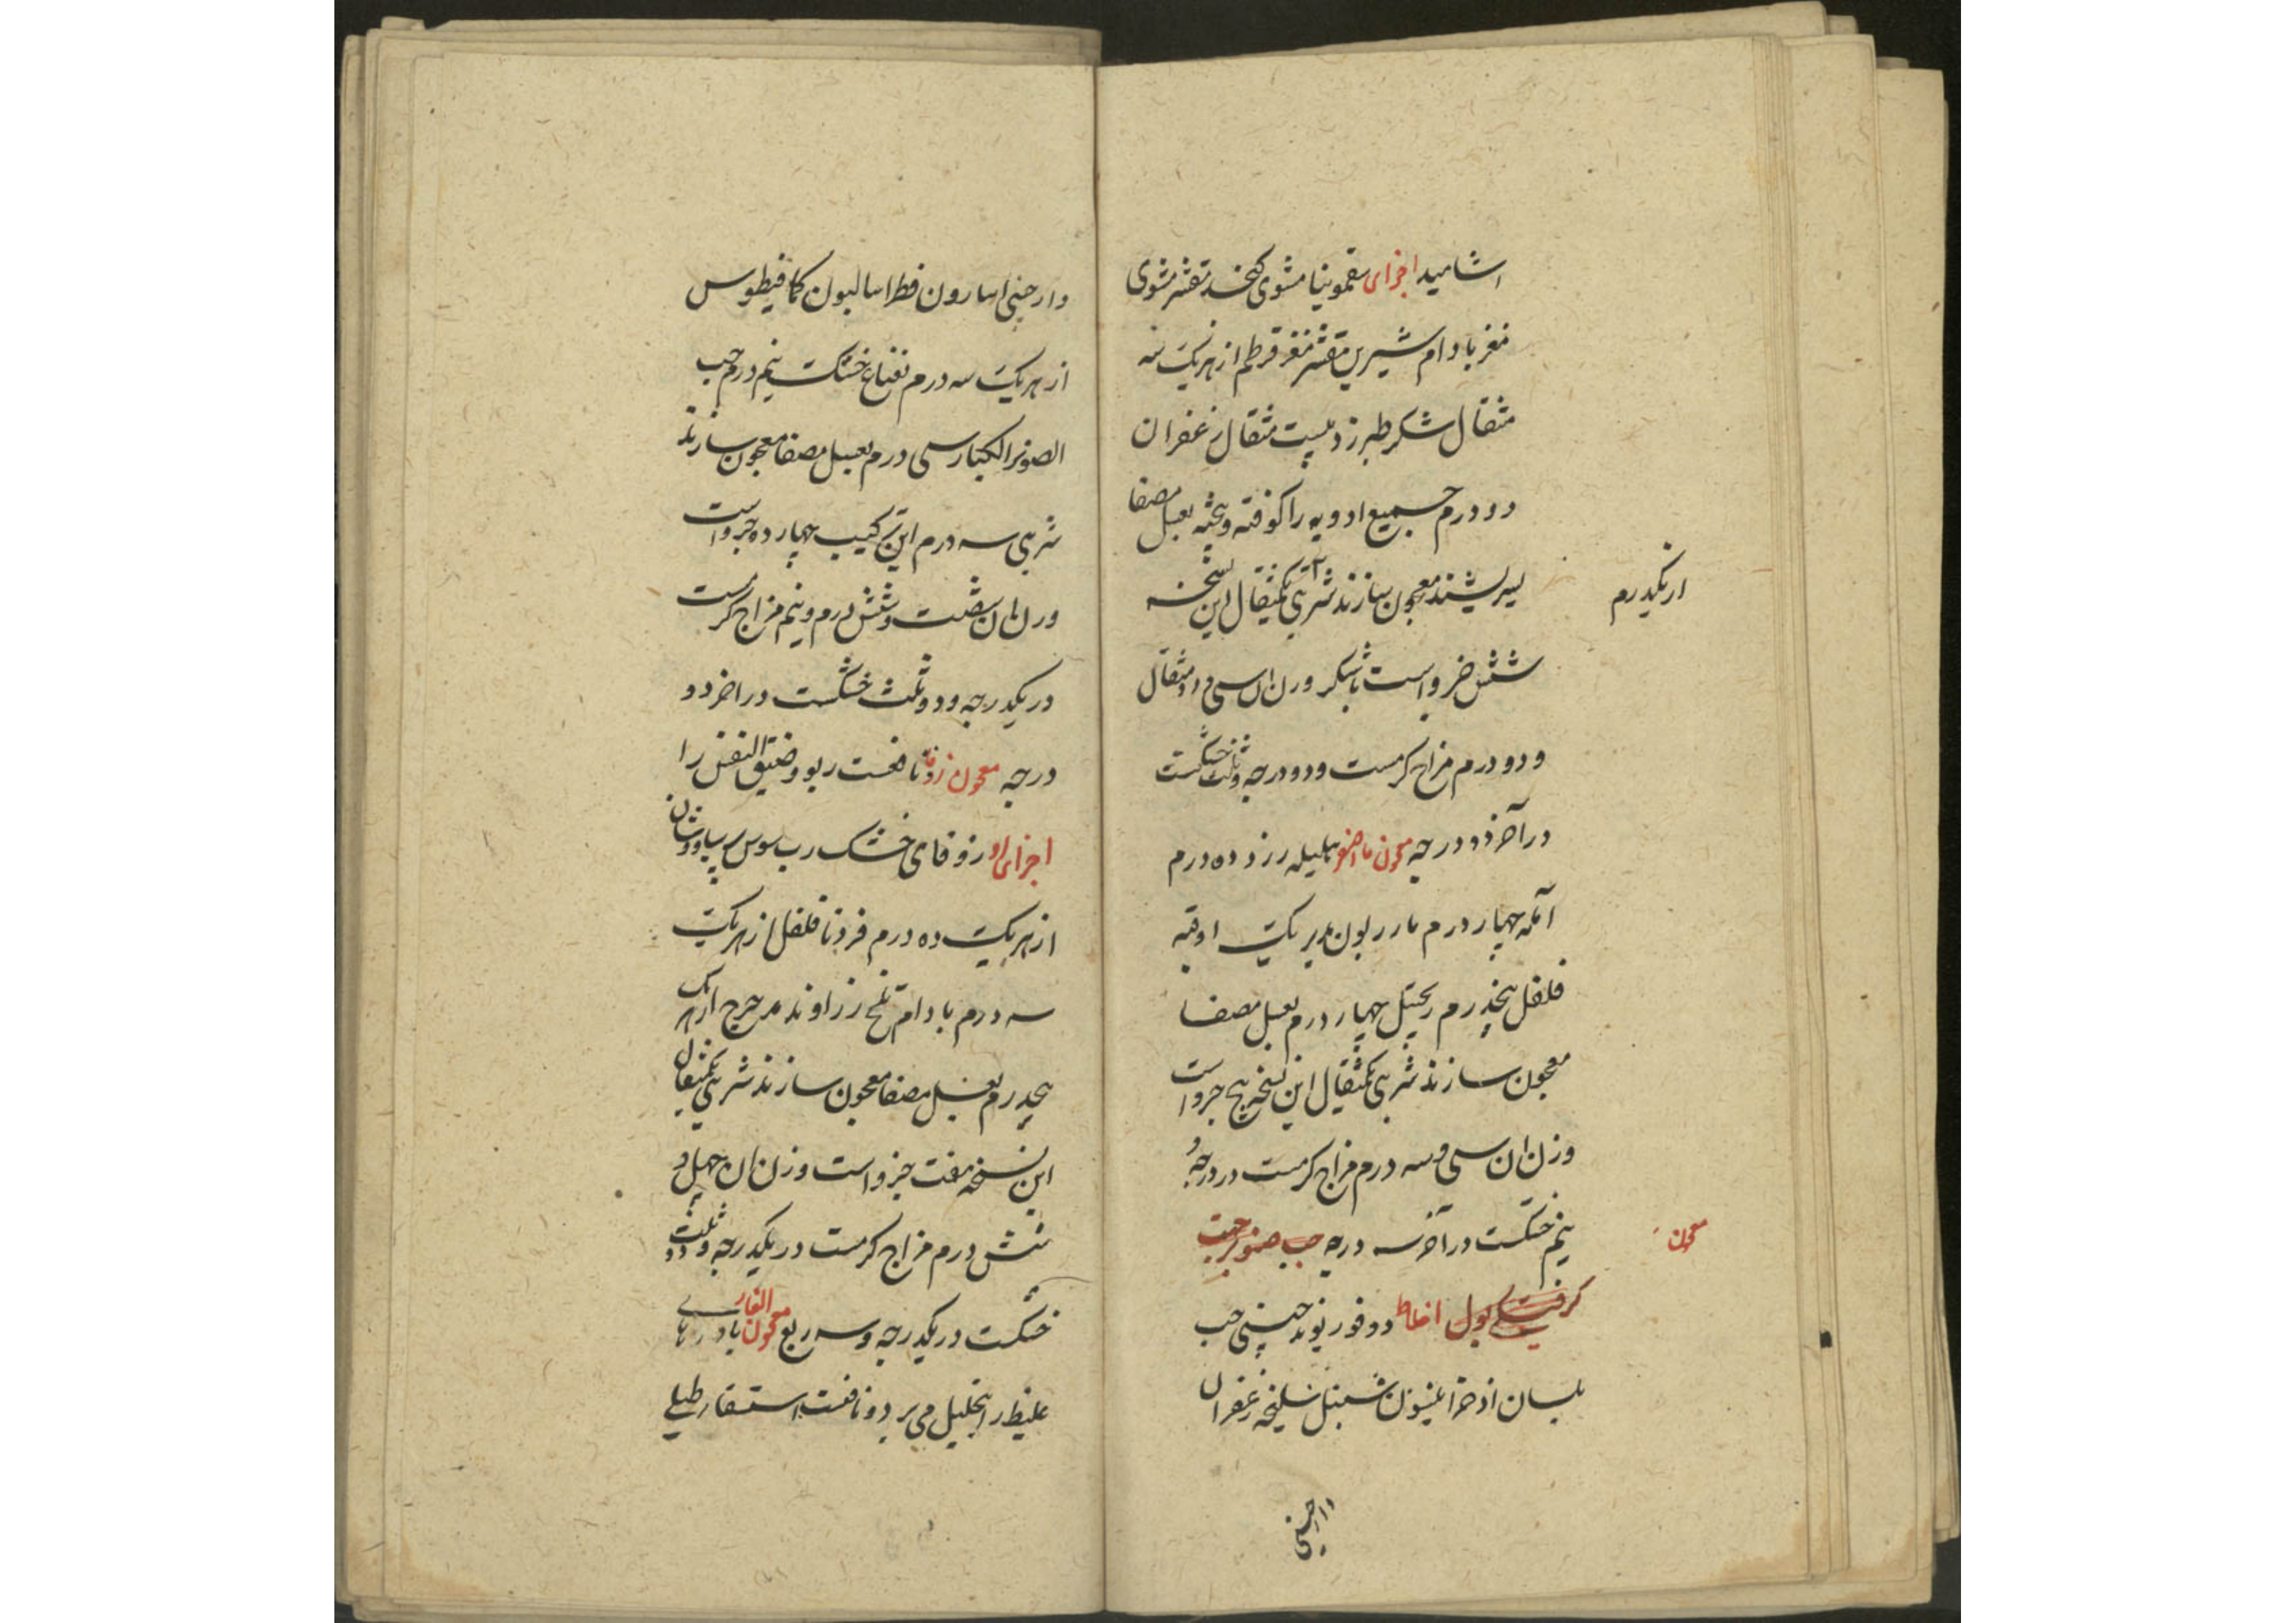 اشامید اجزای سقمونیا مشوی کنجد مقشر مشوی
مغز بادام شیرین مقشر مغز قرطم از هر یک سه
مثقال شکر طبرزد بیست مثقال زعفران
دو درم جمیع ادویه را کوفته و بیخته بعسل مصفا
بسریشند معجون سازند شربتی یکمثقال این نسخه
از یکدرم
شش جزو است با شکر وزن ان سی و دو مثقال
و دو درم مزاج کرمست و دو درجه و ثلث خشکست
در آخر دو درجه معجون هلیله زرد ده درم
آمله چهار درم مازریون مدبر یک اوقیه
فلفل پنجدرم زنجبیل چهار درم بعسل مصفا
معجون سازند شربتی یکمثقال این نسخه پنج جزو است
وزن ان سی و سه درم مزاج کرمست در درجه و
نیم خشکست در آخر سه درجه حب صنوبر جهت
معجون
کرفتکی بول اخلاط دوقو ریوند چینی حب
بلسان اذخر سنبل سلیخه زعفران
دارچینی
دارچینی اسارون فطراسالیون کمافیطوس
از هر یک سه درم نعناع خشک نیم درم حب
الصنوبر الکبار سی درم بعسل مصفا معجون سازند
شربتی سه درم این ترکیب چهارده جزو است
وزن ان شصت و شش درم و نیم مزاج کرمست
در یکدرجه و دو ثلث خشکست در اخر دو
درجه معجون زوفا نافعست ربو و ضیق النفس را
اجزای او زوفای خشک رب سوس پرسیاوشان
از هر یک ده درم قردمانا فلفل از هر یک
سه درم بادام تلخ زراوند مدحرج از هر یک
پنجدرم بعسل مصفا معجون سازند شربتی یکمثقال
این نسخه هفت جزو است وزن ان چهل و
شش درم مزاج کرمست در یکدرجه و دو ثلث
خشکست در یکدرجه و سه ربع معجون الغار بادهای
غلیظ را بتحلیل می برد و نافعست استسقا طبلی